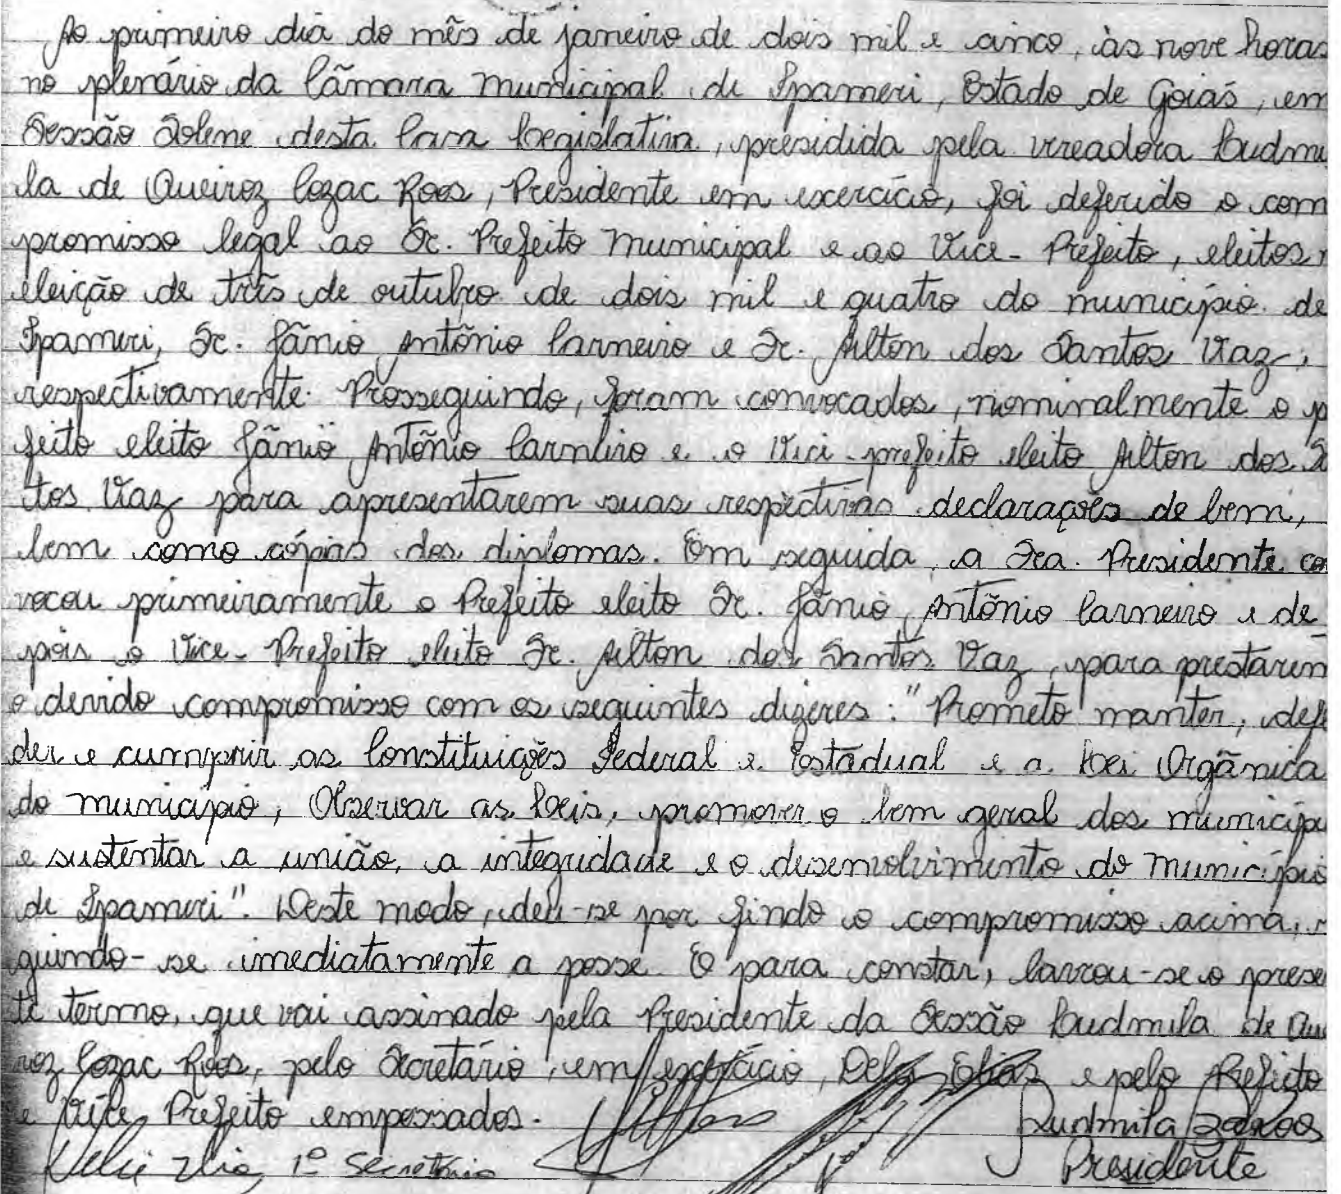 Ao primeiro dia do mês de janeiro de dois mil e cinco, às nove horas
no plenário da Câmara Municipal de Ipameri, Estado de Goiás, em
Sessão Solene desta Casa Legislativa, presidida pela vereadora Ludmi
la de Queiroz Cozac Roos, Presidente em exercício, foi deferido o com
promisso legal ao Sr. Prefeito Municipal e ao Vice-Prefeito, eleitos n
eleição de três de outubro de dois mil e quatro do município de
Ipameri, Sr. Jânio Antônio Carneiro e Sr. Ailton dos Santos Vaz,
respectivamente. Prosseguindo, foram convocados, nominalmente o p
feito eleito Jânio Antônio Carneiro e o Vice-prefeito eleito Ailton dos Sa
tos Vaz para apresentarem suas respectivas declarações de bem,
bem como cópias dos diplomas. Em seguida, a Sra. Presidente co
vocou primeiramente o Prefeito eleito Sr. Jânio Antônio Carneiro e de
pois o Vice-Prefeito eleito Sr. Ailton dos Santos Vaz, para prestarem
o devido compromisso com os seguintes dizeres: "Prometo manter, defe
der e cumprir as Constituições Federal e Estadual e a Lei Orgânica
do município, Observar as Leis, promover o bem geral dos munícipe
e sustentar a união, a integridade e o desenvolvimento do Município
de Ipameri". Deste modo, deu-se por findo o compromisso acima, s
guindo-se imediatamente a posse. E para constar, lavrou-se o prese
te termo, que vai assinado pela Presidente da Sessão Ludmila de Que
roz Cozac Roos, pelo Secretário em exercício, Délio Elias e pelo Prefeito
e Vice Prefeito empossados.
Ludmila Roos
1º Secretário
Presidente